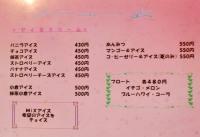 アイスクリーム
バニラアイス 430円
チョコアイス 450円
抹茶アイス 450円
ストロベリーアイス 450円
バナナアイス 450円
ストロベリーチーズアイス 450円
小倉アイス 500円
抹茶小倉アイス 500円
MIXアイス
希望のアイスを
チョイス
あんみつ 550円
マンゴー&アイス 550円
コーヒーゼリー&アイス(夏のみ) 550円
フロート 各480円
イチゴ・メロン
ブルーハワイ・コーラ